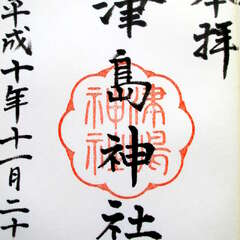 奉拝
津島神社
津島神社
平成十年十一月二十